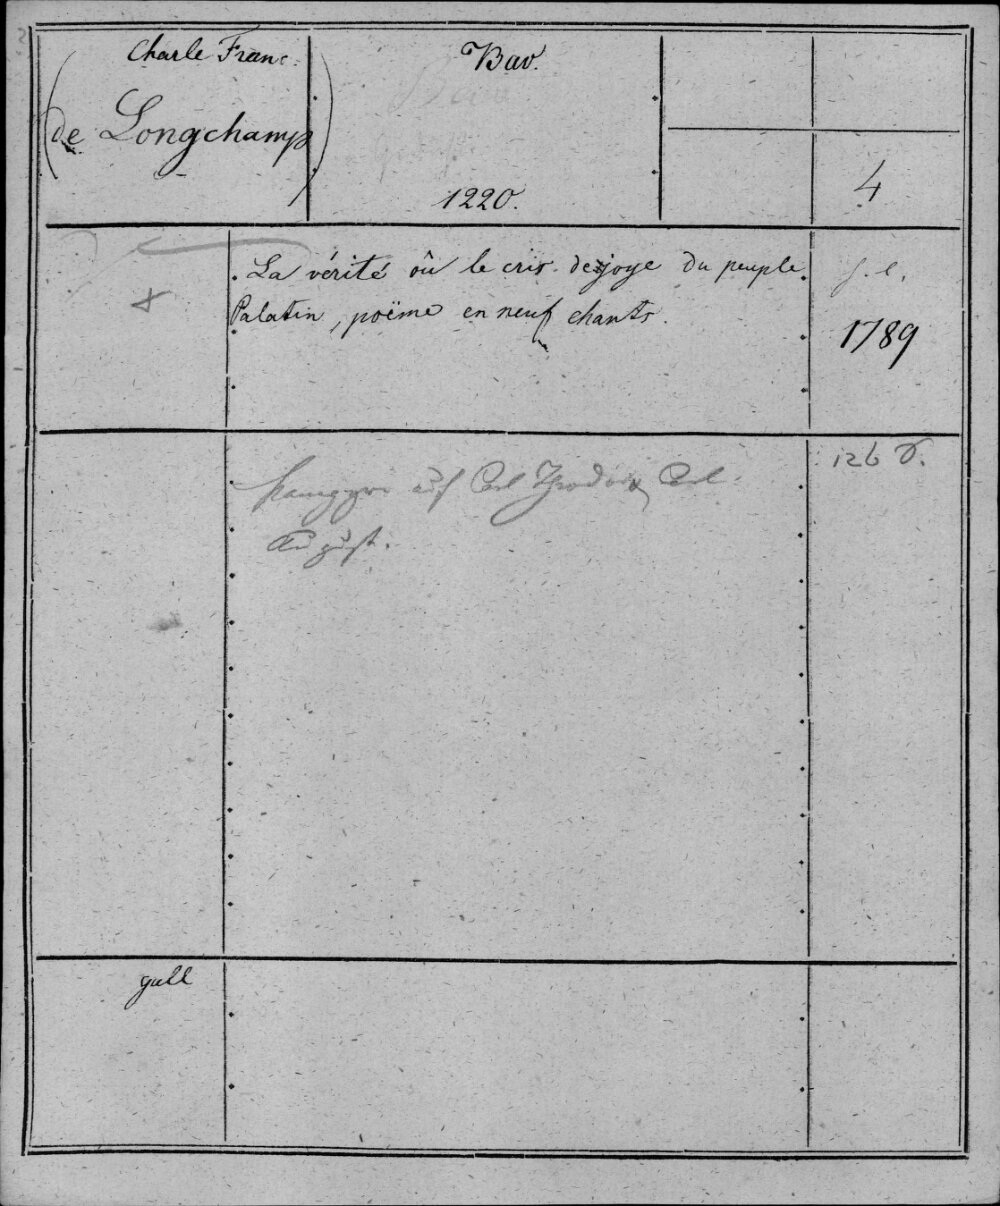 Charle Franc.
(de Longchamp)
Bav.
1220.
4
La vérité oû le cris de joye du peuple
Palatin, poëme en neuf chants.
s. l.
1789
126 S.
auf Carl Theodor, Carl
August.
gall